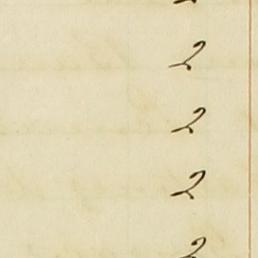 2
2
2
2